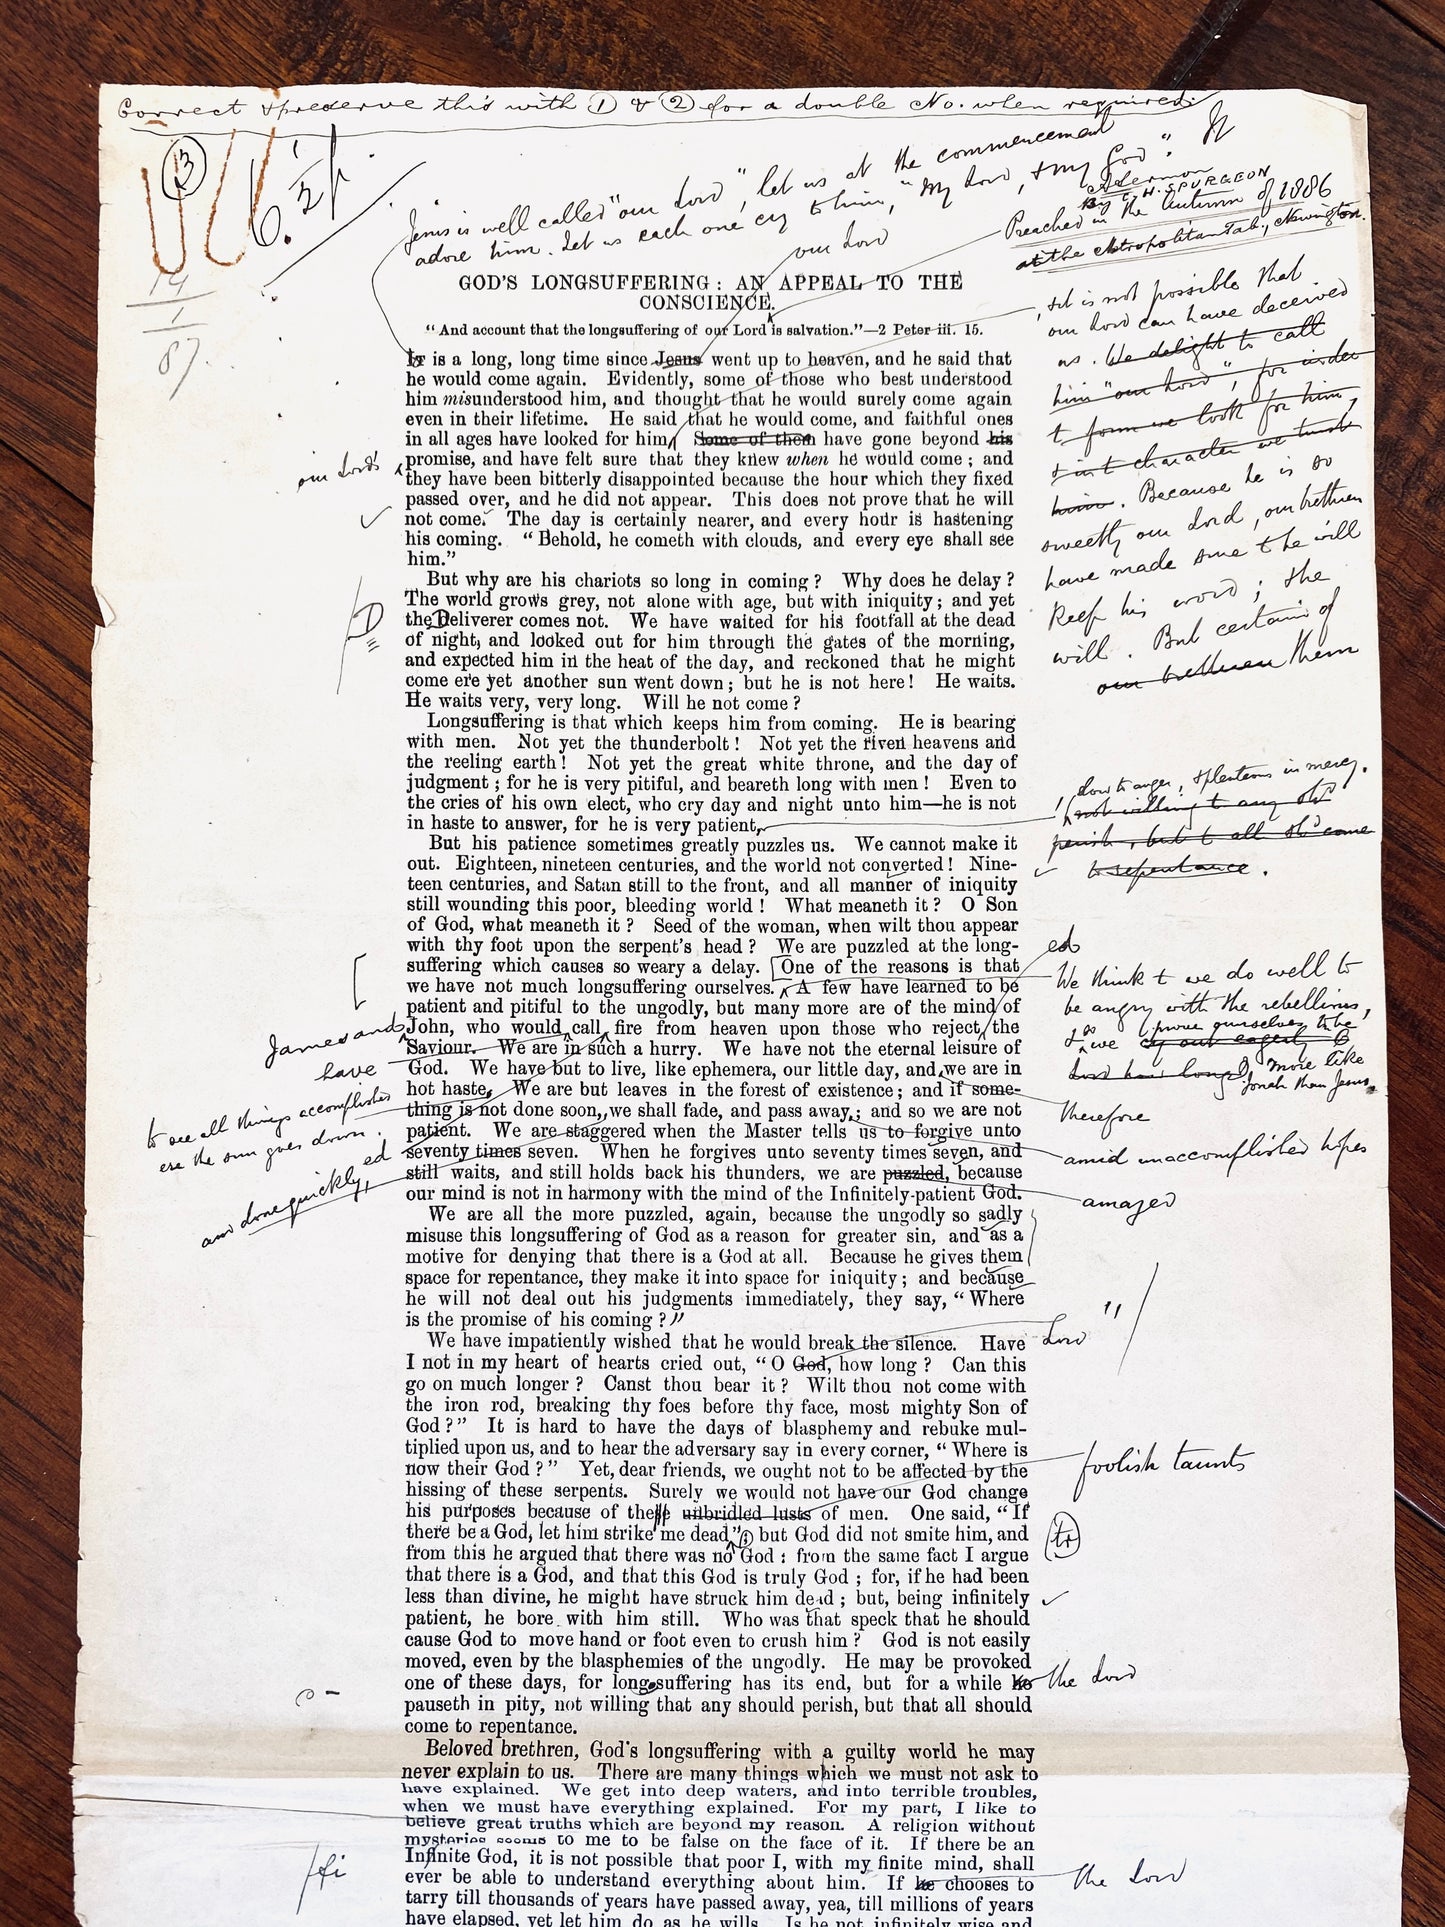 Correct & preserve this with ① & ② for a double No. when required.
③
6.
14
1
87.
Jesus is well called "our Lord", let us at the commencement
adore him. Let us each one cry to him, "My Lord, & my God". It
A Sermon
By C. H. SPURGEON
Preached in the Autumn of 1886
at the Metropolitan Tab., Newington.
our Lord
GOD'S LONGSUFFERING: AN APPEAL TO THE
CONSCIENCE.
"And account that the longsuffering of our Lord is salvation."—2 Peter iii. 15.
It is a long, long time since Jesus went up to heaven, and he said that
he would come again. Evidently, some of those who best understood
him misunderstood him, and thought that he would surely come again
even in their lifetime. He said that he would come, and faithful ones
in all ages have looked for him, Some of them have gone beyond his
promise, and have felt sure that they knew when he would come; and
they have been bitterly disappointed because the hour which they fixed
passed over, and he did not appear. This does not prove that he will
not come. The day is certainly nearer, and every hour is hastening
his coming. "Behold, he cometh with clouds, and every eye shall see
him."
our Lord's
it is not possible that
our Lord can have deceived
us. We delight to call
him "our Lord", for under
t form we look for him,
& in t character we trust
him. Because he is so
sweetly our Lord, our brethren
have made sure t he will
keep his word; & he
will. But certain of
our brethren them
But why are his chariots so long in coming? Why does he delay?
The world grows grey, not alone with age, but with iniquity; and yet
the Deliverer comes not. We have waited for his footfall at the dead
of night, and looked out for him through the gates of the morning,
and expected him in the heat of the day, and reckoned that he might
come ere yet another sun went down; but he is not here! He waits.
He waits very, very long. Will he not come?
D
Longsuffering is that which keeps him from coming. He is bearing
with men. Not yet the thunderbolt! Not yet the riven heavens and
the reeling earth! Not yet the great white throne, and the day of
judgment; for he is very pitiful, and beareth long with men! Even to
the cries of his own elect, who cry day and night unto him—he is not
in haste to answer, for he is very patient,
slow to anger, & plenteous in mercy.
not willing t any shd
perish, but t all shd come
to repentance.
But his patience sometimes greatly puzzles us. We cannot make it
out. Eighteen, nineteen centuries, and the world not converted! Nine-
teen centuries, and Satan still to the front, and all manner of iniquity
still wounding this poor, bleeding world! What meaneth it? O Son
of God, what meaneth it? Seed of the woman, when wilt thou appear
with thy foot upon the serpent's head? We are puzzled at the long-
suffering which causes so weary a delay. [One of the reasons is that
we have not much longsuffering ourselves. A few have learned to be
patient and pitiful to the ungodly, but many more are of the mind of
John, who would call fire from heaven upon those who reject the
Saviour. We are in such a hurry. We have not the eternal leisure of
God. We have but to live, like ephemera, our little day, and we are in
hot haste, We are but leaves in the forest of existence; and if some-
thing is not done soon, we shall fade, and pass away; and so we are not
patient. We are staggered when the Master tells us to forgive unto
seventy times seven. When he forgives unto seventy times seven, and
still waits, and still holds back his thunders, we are puzzled, because
our mind is not in harmony with the mind of the Infinitely-patient God.
[
James and
have
to see all things accomplished
ere the sun goes down.
ed
and done quickly,
ed
We think t we do well to
be angry with the rebellious,
& so we prove ourselves to be
more like
Jonah than Jesus.
therefore
amid unaccomplished hopes
amazed
We are all the more puzzled, again, because the ungodly so sadly
misuse this longsuffering of God as a reason for greater sin, and as a
motive for denying that there is a God at all. Because he gives them
space for repentance, they make it into space for iniquity; and because
he will not deal out his judgments immediately, they say, "Where
is the promise of his coming?"
"/
We have impatiently wished that he would break the silence. Have
I not in my heart of hearts cried out, "O God, how long? Can this
go on much longer? Canst thou bear it? Wilt thou not come with
the iron rod, breaking thy foes before thy face, most mighty Son of
God?" It is hard to have the days of blasphemy and rebuke mul-
tiplied upon us, and to hear the adversary say in every corner, "Where is
now their God?" Yet, dear friends, we ought not to be affected by the
hissing of these serpents. Surely we would not have our God change
his purposes because of these unbridled lusts of men. One said, "If
there be a God, let him strike me dead"; but God did not smite him, and
from this he argued that there was no God: from the same fact I argue
that there is a God, and that this God is truly God; for, if he had been
less than divine, he might have struck him dead; but, being infinitely
patient, he bore with him still. Who was that speck that he should
cause God to move hand or foot even to crush him? God is not easily
moved, even by the blasphemies of the ungodly. He may be provoked
one of these days, for long-suffering has its end, but for a while he
pauseth in pity, not willing that any should perish, but that all should
come to repentance.
Lord
foolish taunts
tr
the Lord
Beloved brethren, God's longsuffering with a guilty world he may
never explain to us. There are many things which we must not ask to
have explained. We get into deep waters, and into terrible troubles,
when we must have everything explained. For my part, I like to
believe great truths which are beyond my reason. A religion without
mysteries seems to me to be false on the face of it. If there be an
Infinite God, it is not possible that poor I, with my finite mind, shall
ever be able to understand everything about him. If he chooses to
tarry till thousands of years have passed away, yea, till millions of years
have elapsed, yet let him do as he wills. Is he not infinitely wise and
fi
the Lord